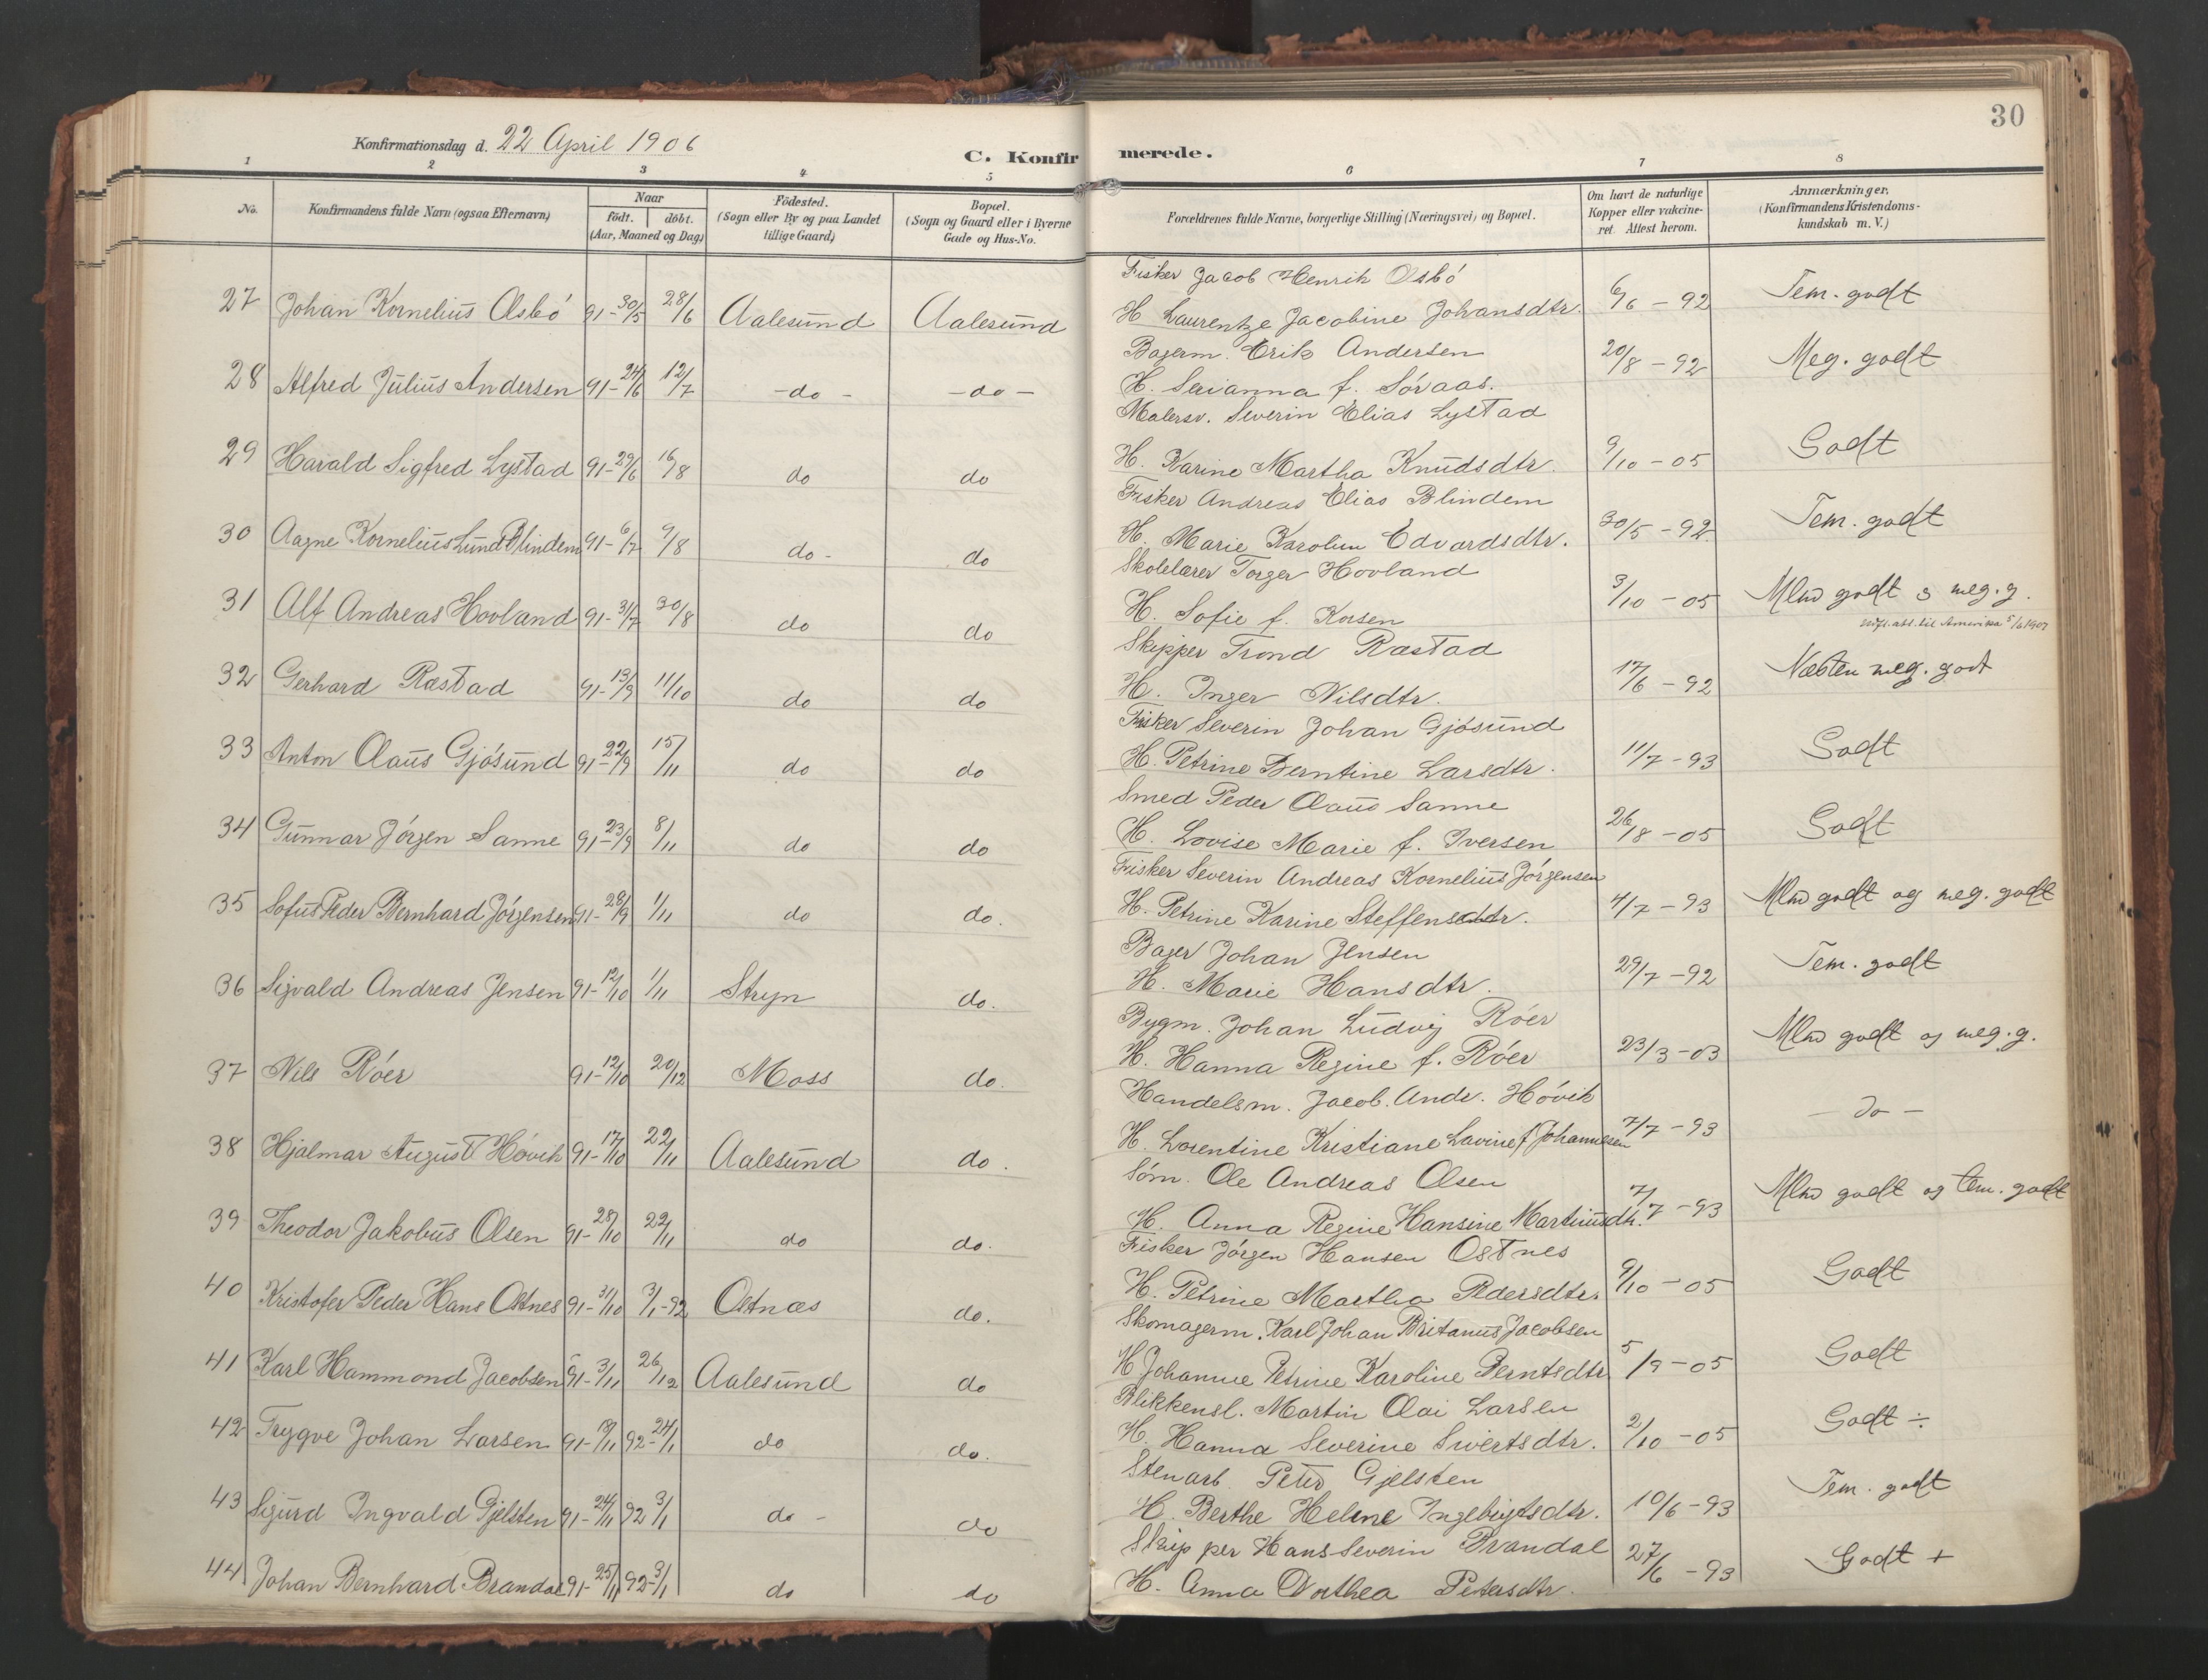 30
Konfirmationsdag d. 22 April 1906
C. Konfirmerede.
1 2 3 4 5 6 7 8
No. Konfirmandens fulde Navn (ogsaa Efternavn) Naar födt. döbt. (Aar, Maaned og Dag) Födested. (Sogn eller By og paa Landet tillige Gaard) Bopæl. (Sogn og Gaard eller i Byerne Gade og Hus-No. Forældrenes fulde Navne, borgerlige Stilling (Næringsvei) og Bopæl. Om havt de naturlige Kopper eller vakcineret. Attest herom. Anmærkninger. (Konfirmandens Kristendomskundskab m. V.)
27 Johan Kornelius Osbó 91-30/5 28/6 Aalesund Aalesund Fisker Jacob Henrik Osbó 6/6-92 Tem. godt
H. Laurentze Jacobine Johansdtr.
28 Alfred Julius Andersen 91-24/6 12/7 -do- -do- Bagerm. Erik Andersen 20/8-92 Meg. godt
H. Serianna f. Sóraas.
29 Harald Sigfred Lystad 91-29/6 16/8 do do Malersv. Severin Elias Lystad 9/10-05 Godt
H. Karine Martha Knudsdtr.
30 Aagne Kornelius Lund Blindem 91-6/7 9/8 do- do Fisker Andreas Elias Blindem 30/5-92 Tem. godt
H. Marie Karolin Edvardsdtr.
31 Alf Andreas Hovland 91-31/7 30/8 do do Skolelærer Torger Hovland 3/10-05 Mlm godt o meg. g.
H. Sofie f. Korsen til Amerika 5/6 1907
32 Gerhard Rastad 91-13/9 11/10 do do Skipper Trond Rastad 17/6-92 Næsten meg. godt
H. Inger Nilsdtr.
33 Anton Olaus Gjósund 91-22/9 15/11 do do Fisker Severin Johan Gjósund 11/7-93 Godt
H. Petrine Berntine Larsdtr.
34 Gunnar Jórgen Sanne 91-23/9 8/11 do do Smed Peder Olaus Sanne 26/8-05 Godt
H. Lovise Marie f. Iversen
35 Sofus Peder Bernhard Jórgensen 91-28/9 1/11 do do. Fisker Severin Andreas Kornelius Jórgensen 4/7-93 Mlm godt og meg. godt
H. Petrine Karine Steffensdtr.
36 Sigvald Andreas Jensen 91-12/10 1/11 Stryn do. Bager Johan Jensen 29/7-92 Tem. godt
H. Marie Hansdtr.
37 Nils Róer 91-12/10 20/12 Moss do. Bygm. Johan Ludvig Róer 23/3-03 Mlm godt og meg. g.
H. Hanna Regine f. Róer
38 Hjalmar August Hóvik 91-17/10 22/11 Aalesund do. Handelsm. Jacob. Andr. Hóvik 7/7-93 -do-
H. Lorentine Kristiane Lavine f. Johannesen
39 Theodor Jakobus Olsen 91-28/10 22/11 do do. Sóm. Ole Andreas Olsen 7/7-93 Mlm godt og tem. godt
H. Anna Regine Hansine Martinusdtr.
40 Kristofer Peder Hans Ostnes 91-31/10 3/1-92 Ostnæs do. Fisker Jórgen Hansen Ostnes 9/10-05 Godt
H. Petrine Martha Pedersdtr.
41 Karl Hammond Jacobsen 91-3/11 26/12 Aalesund do Skomagerm. Karl Johan Britanus Jacobsen 5/9-05 Godt
H. Johanne Petrine Karoline Berntsdtr
42 Trygve Johan Larsen 91-19/11 92-24/1 do do. Blikkensl. Martin Olai Larsen 2/10-05 Godt ÷
H. Hanna Severine Sivertsdtr.
43 Sigurd Ingvald Gjelsten 91-24/11 92 3/1 do- do Stenarb. Peter Gjelsten 10/6-93 Tem. godt
H. Berthe Helene Ingebrigtsdtr.
44 Johan Bernhard Brandal 91-25/11 92-3/1 do do Skipper Hans Severin Brandal 27/6-93 Godt +
H. Anna Dorthea Petersdtr.